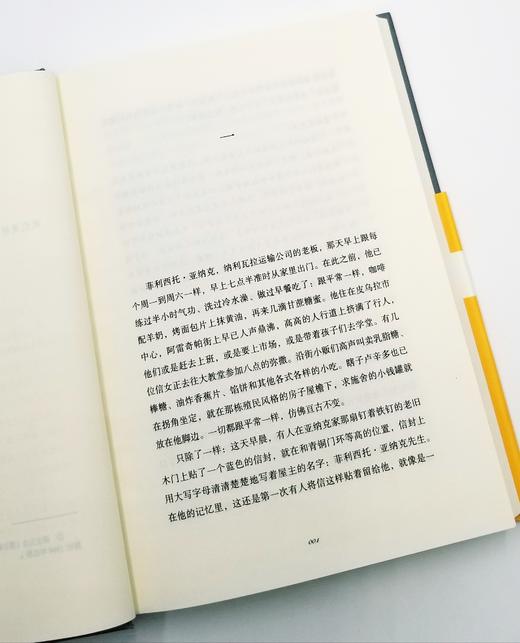 一
菲利西托·亚纳克，纳利瓦拉运输公司的老板，那天早上跟每
个周一到周六一样，早上七点半准时从家里出门。在此之前，他已
练过半小时气功、洗过冷水澡、做过早餐吃了：跟平常一样，咖啡
配羊奶，烤面包片上抹黄油，再来几滴甘蔗糖蜜。他住在皮乌拉市
中心，阿雷奇帕街上早已人声鼎沸，高高的人行道上挤满了行人，
他们或是赶去上班，或是要上市场，或是带着孩子们去学堂。有几
位信女正去往大教堂参加八点的弥撒。沿街小贩们高声叫卖乳脂糖、
棒糖、油炸香蕉片、馅饼和其他各式各样的小吃。瞎子卢辛多也已
在拐角坐定，就在那栋殖民风格的房子屋檐下，求施舍的小钱罐就
放在他脚边。一切都跟平常一样，仿佛亘古不变。
只除了一样：这天早晨，有人在亚纳克家那扇钉着铁钉的老旧
木门上贴了一个蓝色的信封，就在和青铜门环等高的位置，信封上
用大写字母清清楚楚地写着屋主的名字：菲利西托·亚纳克先生。
在他的记忆里，这还是第一次有人将信这样贴着留给他，就像是一
001